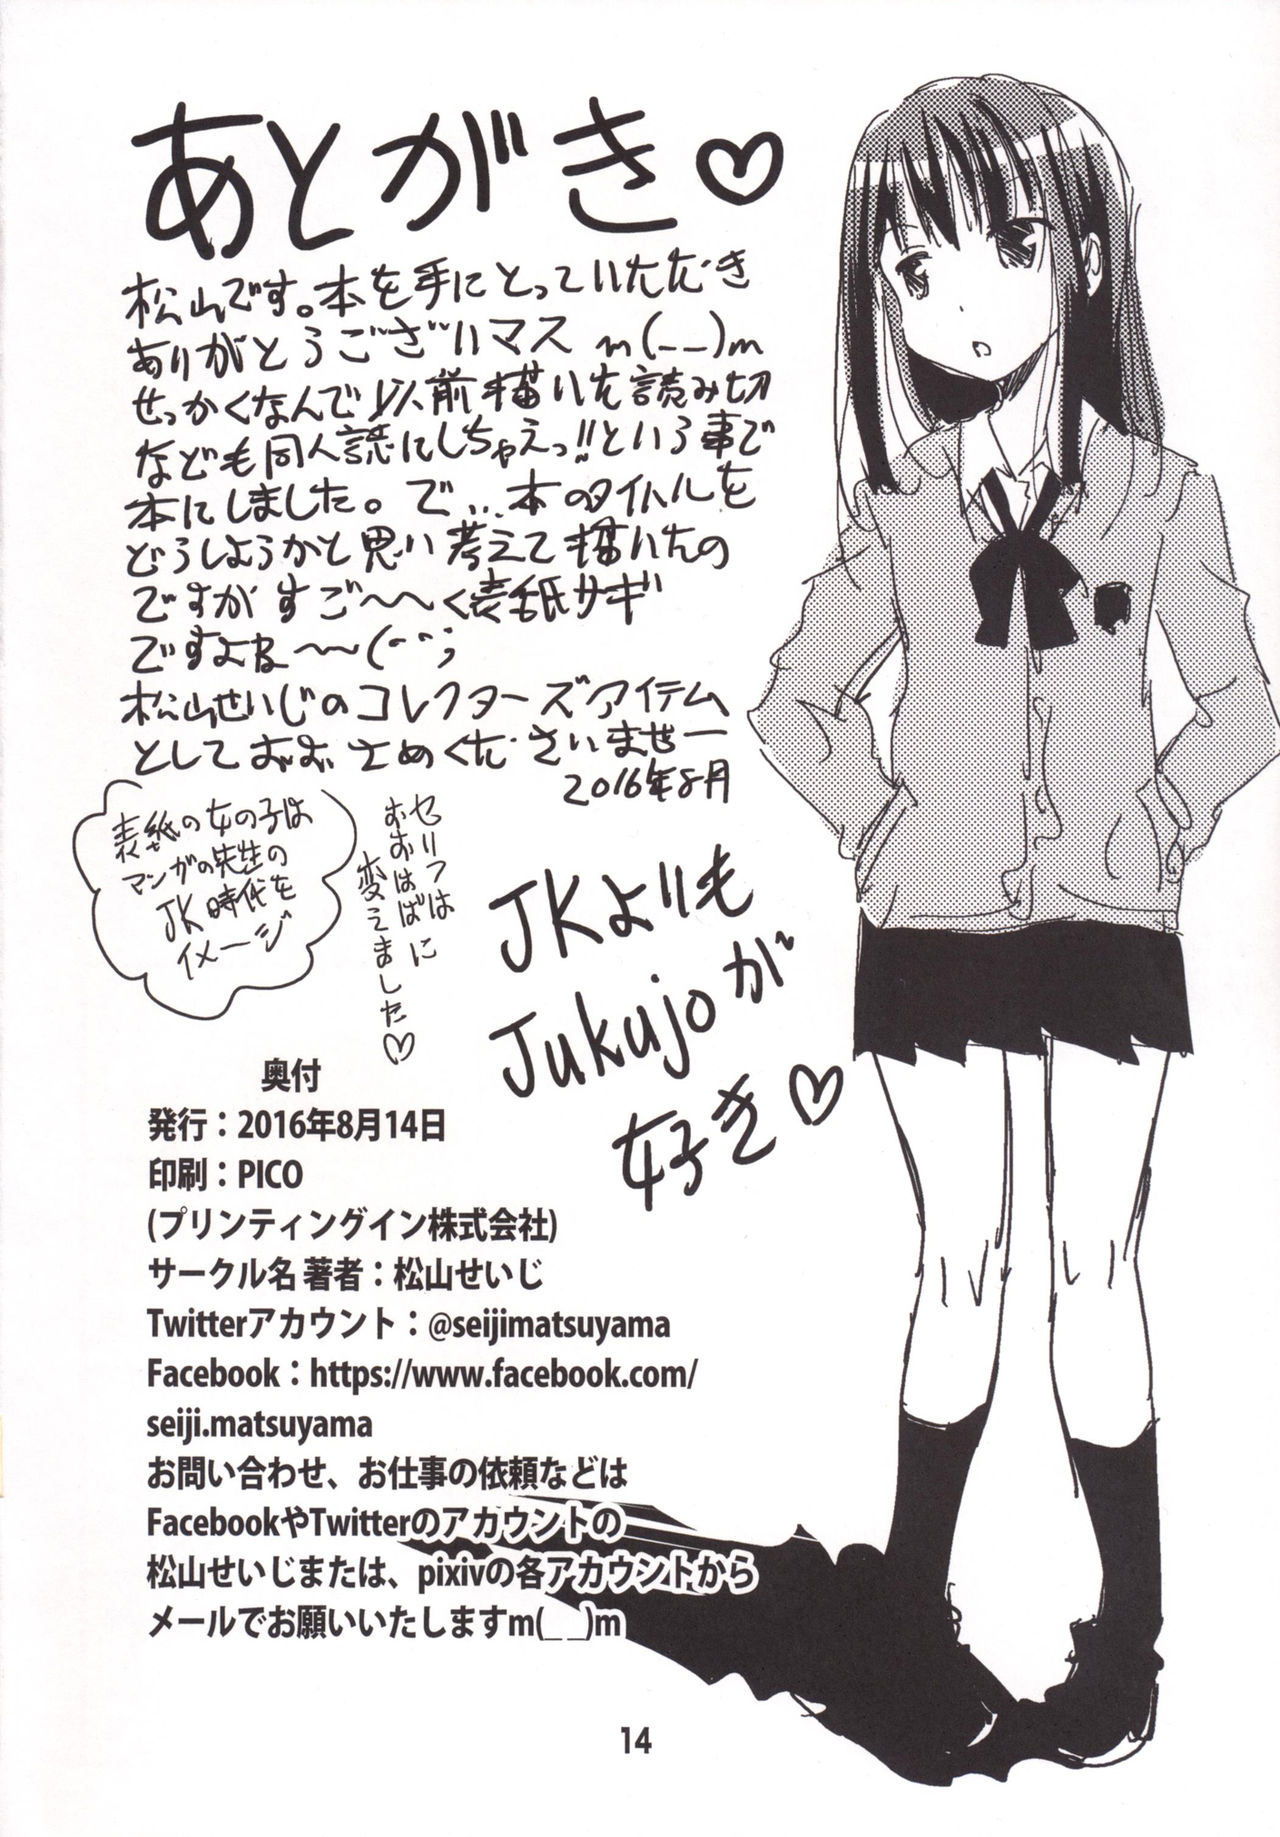 あとがき♡
松山です。本を手にとっていただき
ありがとうございマス m(_ _)m
せっかくなんで以前描いた読み切
なども同人誌にしちゃえっ!!という事で
本にしました。で…本のタイトルを
どうしようかと思い考えて描いたの
ですがすご〜〜く表紙サギ
ですよね〜〜(^^;
松山せいじのコレクターズアイテム
としておおさめくださいませー
2016年8月
表紙の女の子は
マンガの先生の
JK時代を
イメージ
セリフは
おおはばに
変えました♡
JKよりも
Jukujoが
好き♡
奥付
発行：2016年8月14日
印刷：PICO
(プリンティングイン株式会社)
サークル名 著者：松山せいじ
Twitterアカウント：@seijimatsuyama
Facebook：https://www.facebook.com/
seiji.matsuyama
お問い合わせ、お仕事の依頼などは
FacebookやTwitterのアカウントの
松山せいじまたは、pixivの各アカウントから
メールでお願いいたしますm(_ _)m
14